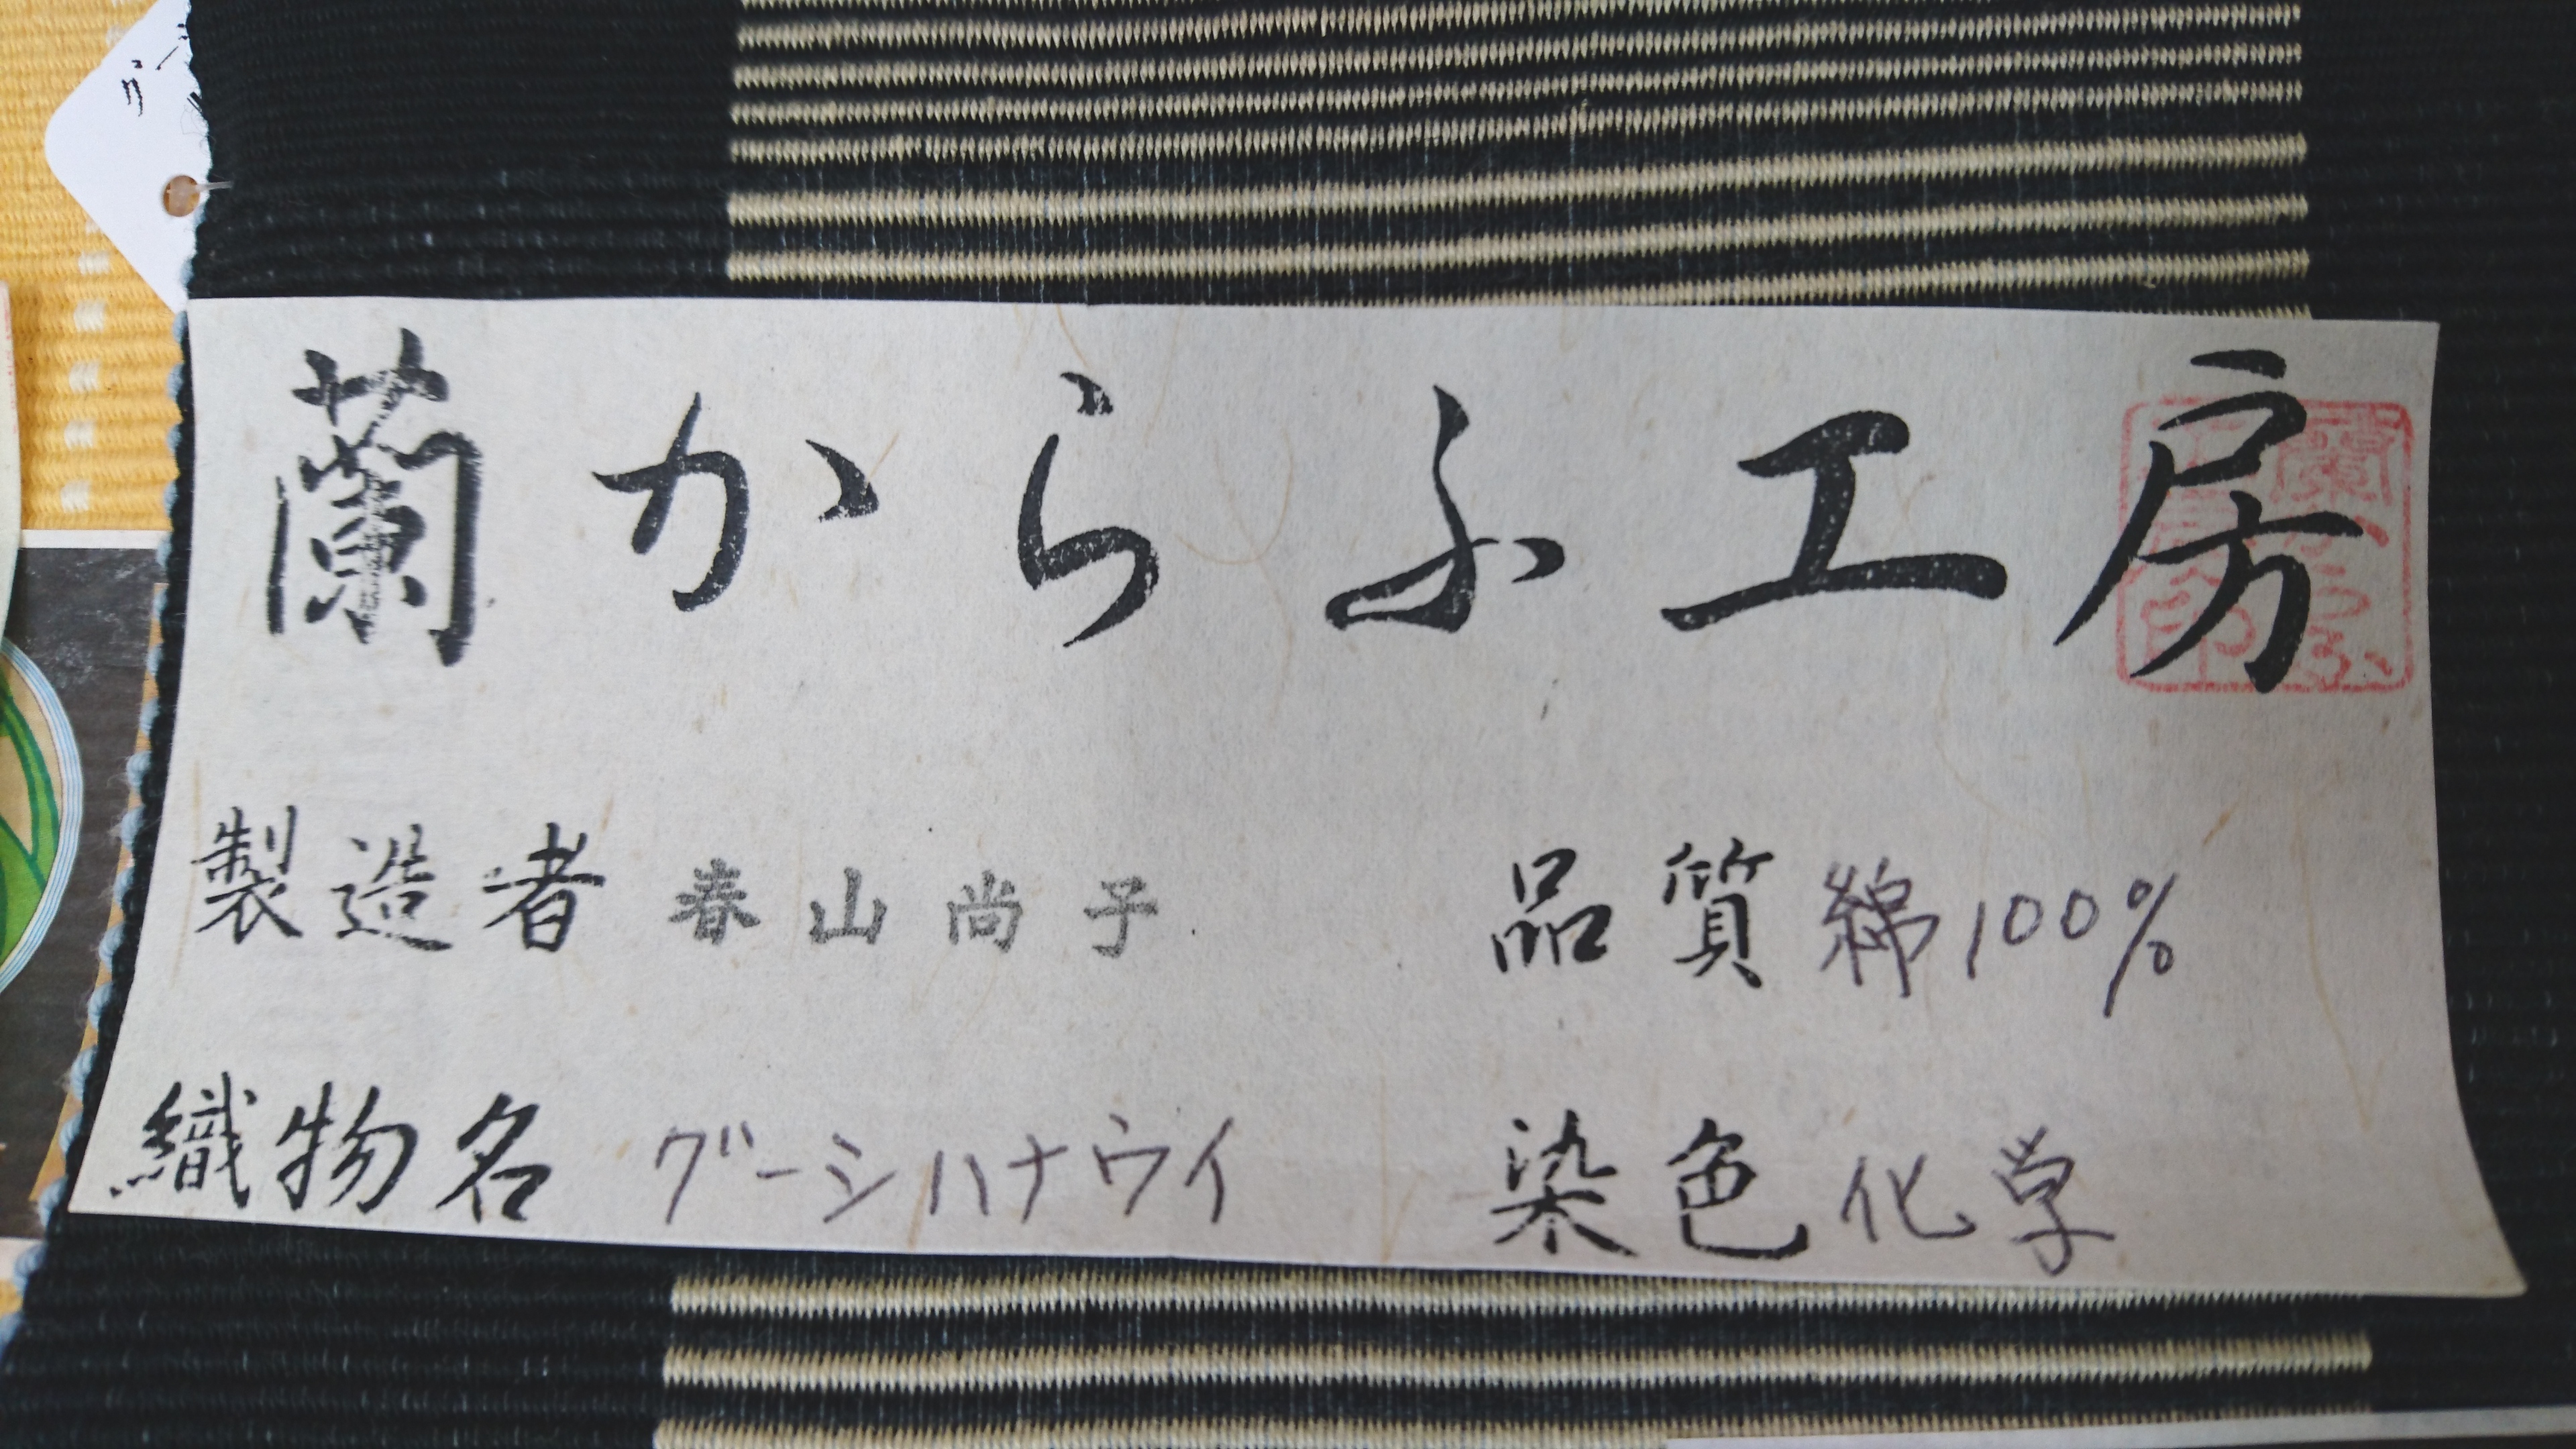 蘭からふ工房
製造者 春山尚子 品質 綿100%
織物名 グーシハナウイ 染色 化学